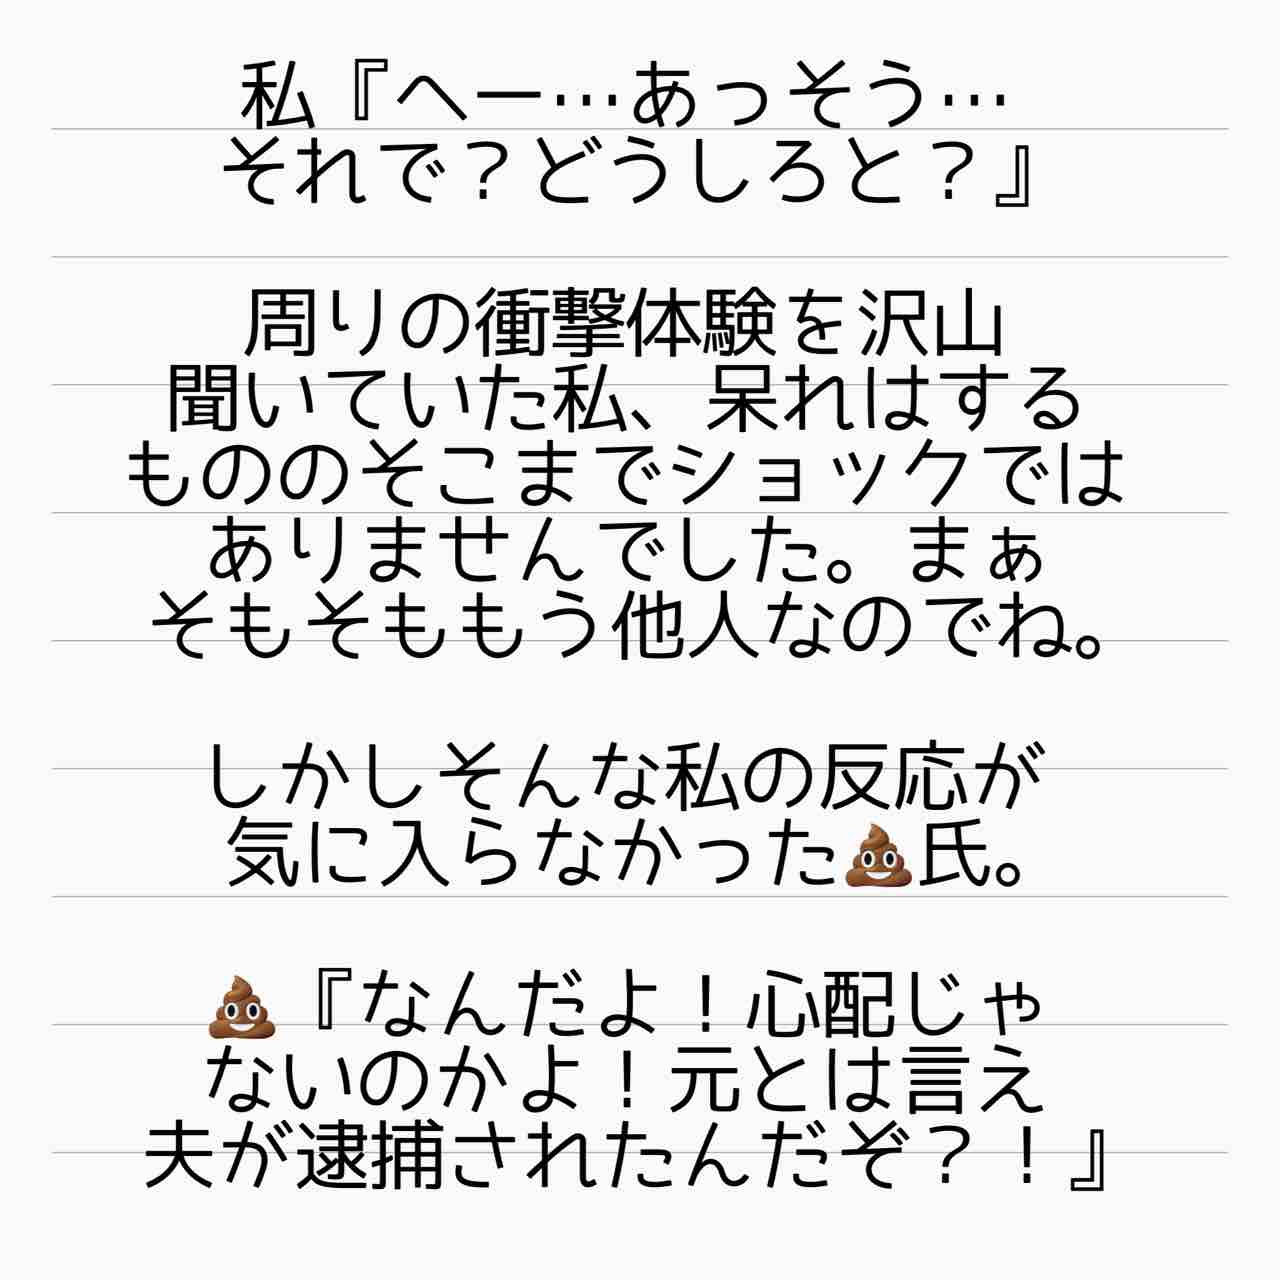 私『へー…あっそう…
それで？どうしろと？』
周りの衝撃体験を沢山
聞いていた私、呆れはする
もののそこまでショックでは
ありませんでした。まぁ
そもそももう他人なのでね。
しかしそんな私の反応が
気に入らなかった💩氏。
💩『なんだよ！心配じゃ
ないのかよ！元とは言え
夫が逮捕されたんだぞ？！』